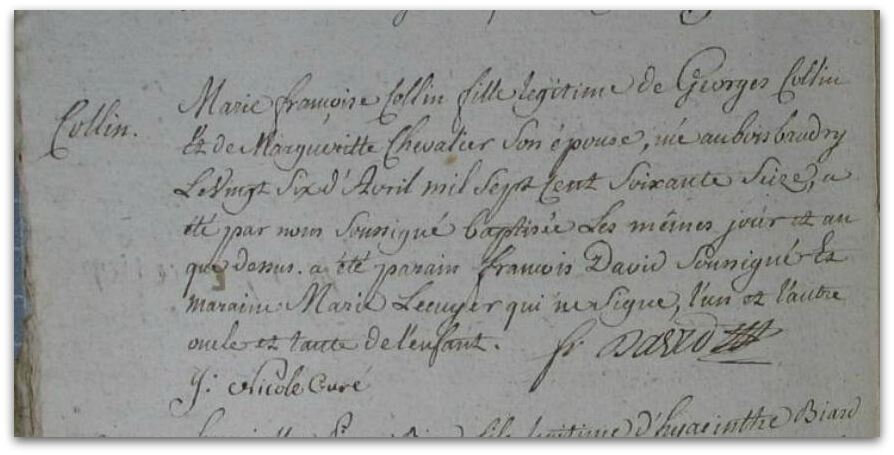 Collin.
Marie françoise Collin fille legitime de Georges Collin
Et de Margueritte Chevalier son épouse, née au bois baudry
Le vingt Six d'Avril mil Sept Cent Soixante Seize, a
été par nous Soussigné baptisée Les mêmes jour et an
que dessus. a été parain françois David Soussigné Et
maraine Marie Lecuyer qui ne Signe, l'un et l'autre
oncle et tante de l'enfant. fr. David
J: Nicole Curé
fils legitime d'hyacinthe Biard